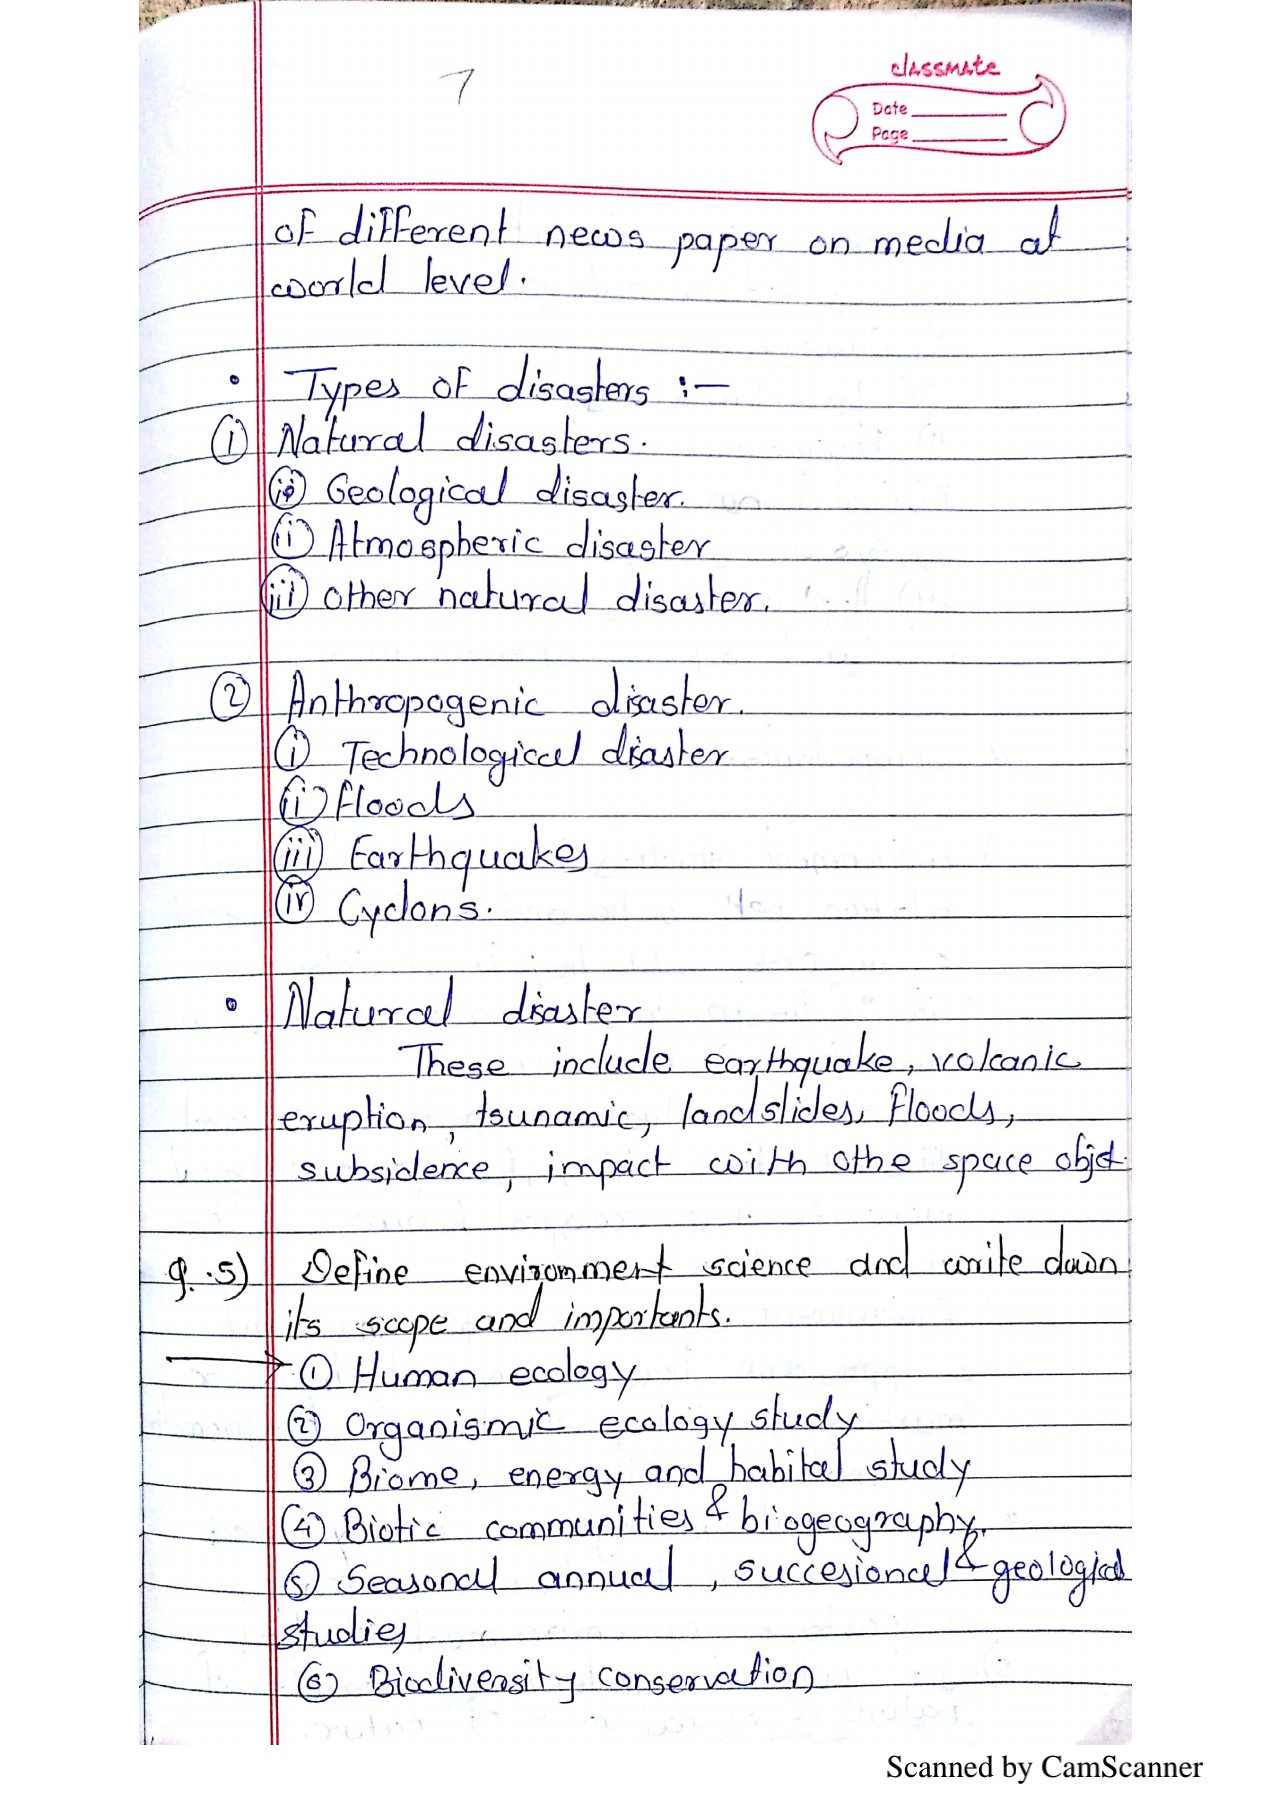 7
classmate
Date
Page
of different news paper on media at
world level.
• Types of disasters :-
① Natural disasters.
(i) Geological disaster.
(ii) Atmospheric disaster
(iii) other natural disaster.
② Anthropogenic disaster.
(i) Technological disaster
(ii) floods
(iii) Earthquakes
(iv) Cyclons.
• Natural disaster
These include earthquake, volcanic
eruption, tsunamic, landslides, floods,
subsidence, impact with othe space objct.
Q.5) Define environment science and write down
its scope and importants.
→ ① Human ecology
② Organismic ecology study
③ Biome, energy and habital study
④ Biotic communities & biogeography.
⑤ Seasonal annual, succesional & geological
studies
⑥ Biodiversity conservation
Scanned by CamScanner